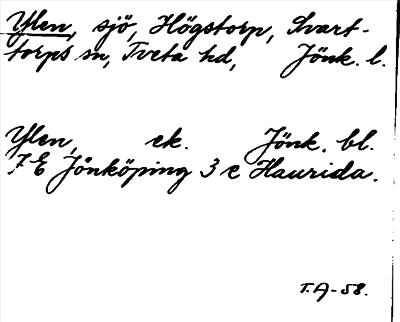 Ylen, sjö, Högstorp, Svart-
torps sn, Tveta hd, Jönk. l.
Ylen, ek. Jönk. bl.
7 E Jönköping 3 e Haurida.
T.A-58.